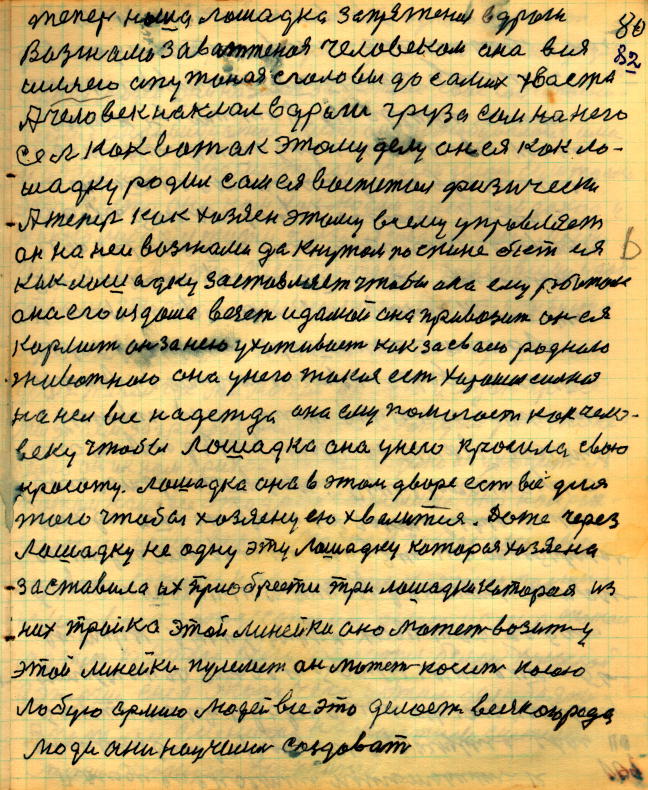 тепер наша лошадка запряженая в дроги 80
Возжамы заважженая человеком она вся 82
опутоная с головы до самих хваста
А человек наклал в дроги груза сам на него
сел как вот так этому делу он ея как ло-
шадку родил сам ея воспитал физически
А тепер как хозяен этому всему управляет
он на ней возжамы да кнутом по спине бьет ея
как лошадку заставляет чтобы она ему
она его из дома везет и дамой она привозит он ея
кормит он за нею ухаживает как за сваею родною
животною она у него такая ест хорошая
на неи все надежда она ему помогает как чело-
веку чтобы лошадка она у него красила сваю
красоту. лошадка она в этом дворе есть всё для
того чтобы хозяену ею хвалится. Доже через
лошадку не одну эту лошадку которая хозяена
заставила их приобрести три лошадки каторая из
них тройка этой линейки ано может возит у
этой линейки пулемет он может косит косою
любую армию людей все это делоет всякого рода
люди они научение создоват